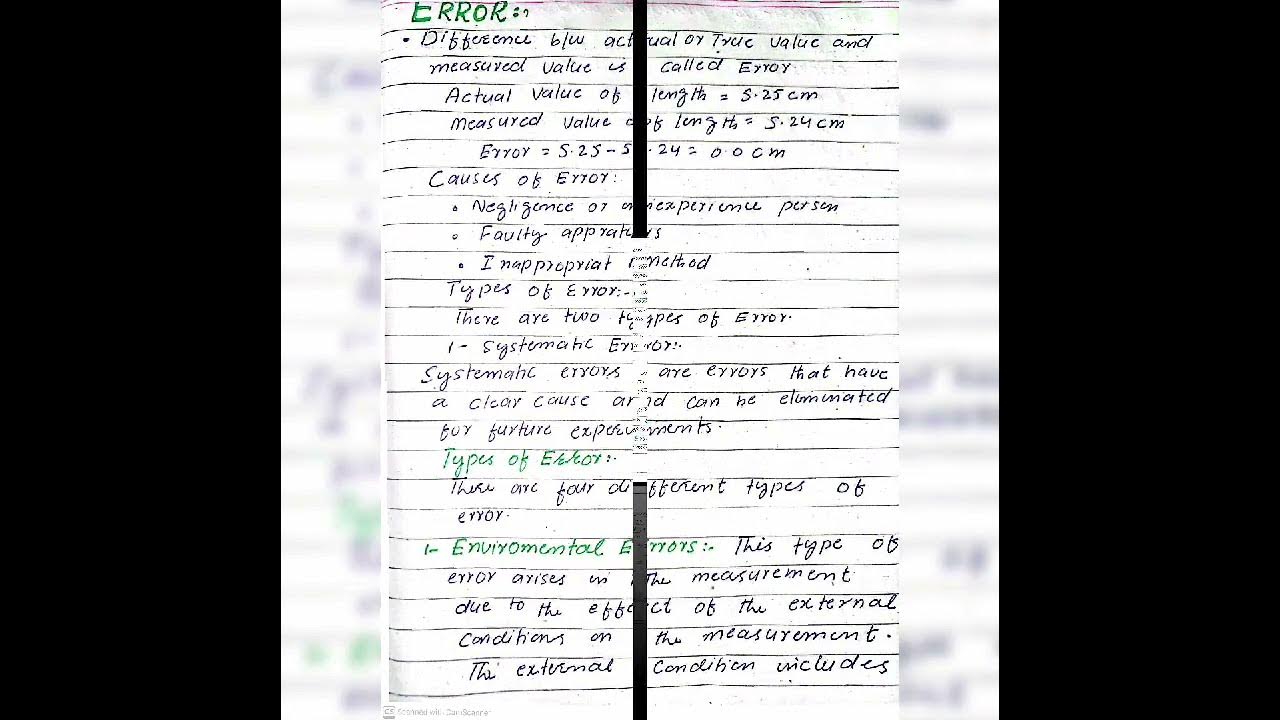 ERROR:-
• Difference b/w actual or True value and
measured value is called Error.
Actual value of length = 5.25cm
Measured value of length = 5.24cm
Error = 5.25-5.24= 0.0cm
Causes of Error:
• Negligence or inexperience person
• Faulty appratus
• Inappropriat method
Types of Error:-
There are two types of Error.
1- Systematic Error:-
Systematic errors are errors that have
a clear cause and can be eliminated
for furture experiments.
Types of Error:-
There are four different types of
error.
1- Enviromental Errors:- This type of
error arises in the measurement
due to the effect of the external
conditions on the measurement.
The external condition includes
CS Scanned with CamScanner